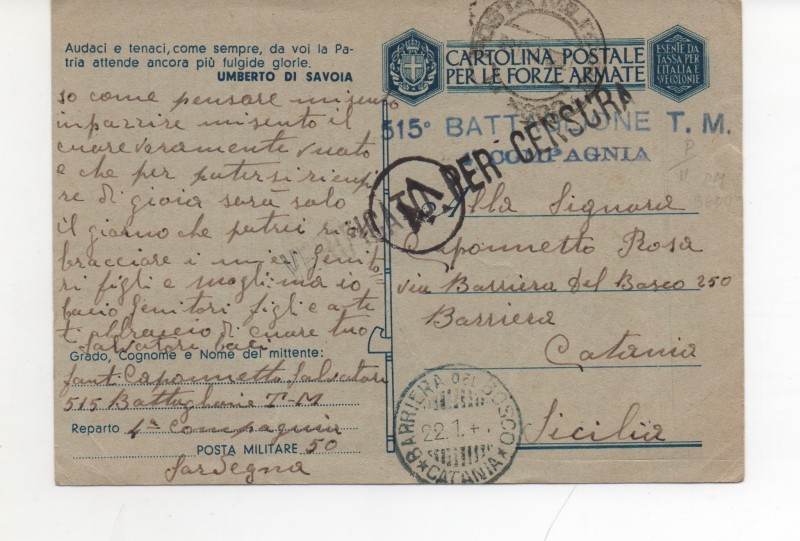 Audaci e tenaci, come sempre, da voi la Pa-
tria attende ancora più fulgide glorie.
UMBERTO DI SAVOIA
so come pensare misento
inpazzire misento il
cuore veramente vuoto
e che per potersi riempi
re di gioia sarà solo
il giorno che potrei ria
bracciare i miei Genito
ri figli e moglima io
bacio Genitori figli e a te
t abbraccio di cuore tuo
Salvatori baci
Grado, Cognome e Nome del mittente:
fant. Caponnetto Salvatori
515 Battaglione T-M
Reparto 4ª Compagnia
POSTA MILITARE 50
Sardegna
CARTOLINA POSTALE
PER LE FORZE ARMATE
ESENTE DA
TASSA PER
L'ITALIA E
COLONIE
515° BATTAGLIONE T. M.
COMPAGNIA
VERIFICATA PER CENSURA
Alla Signora
Caponnetto Rosa
via Barriera del Bosco 250
Barriera
Catania
Sicilia
BARRIERA DEL BOSCO
22.1.4
*CATANIA*